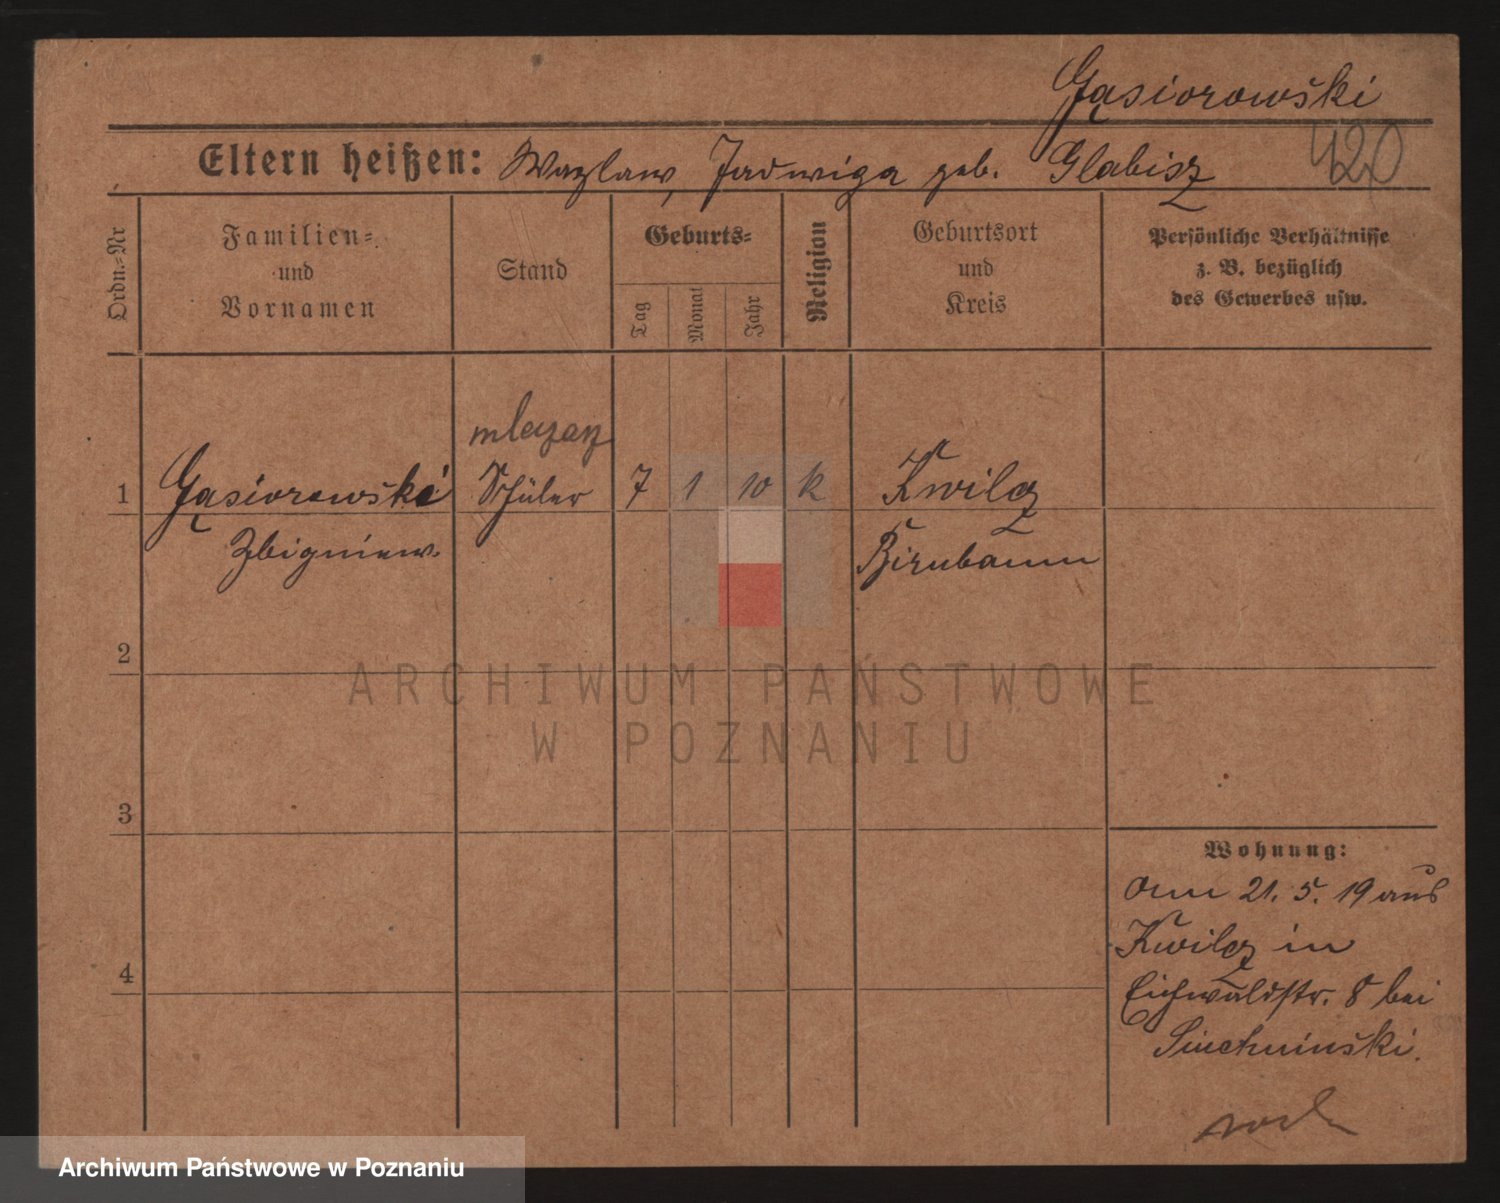 Gąsiorowski
Eltern heißen: Wazlaw, Jadwiga geb. Glabisz
420
Ordn.-Nr
Familien-
und
Vornamen
Stand
Geburts-
Tag
Monat
Jahr
Religion
Geburtsort
und
Kreis
Persönliche Verhältnisse
z. B. bezüglich
des Gewerbes usw.
1
Gąsiorowski
Zbigniew
Schüler
7
1
10
k
Kwilcz
Birnbaum
2
ARCHIWUM PAŃSTWOWE
W POZNANIU
3
Wohnung:
21. 5. 19 aus
Kwilcz in
Eichwaldstr. 8 bei
4
Archiwum Państwowe w Poznaniu